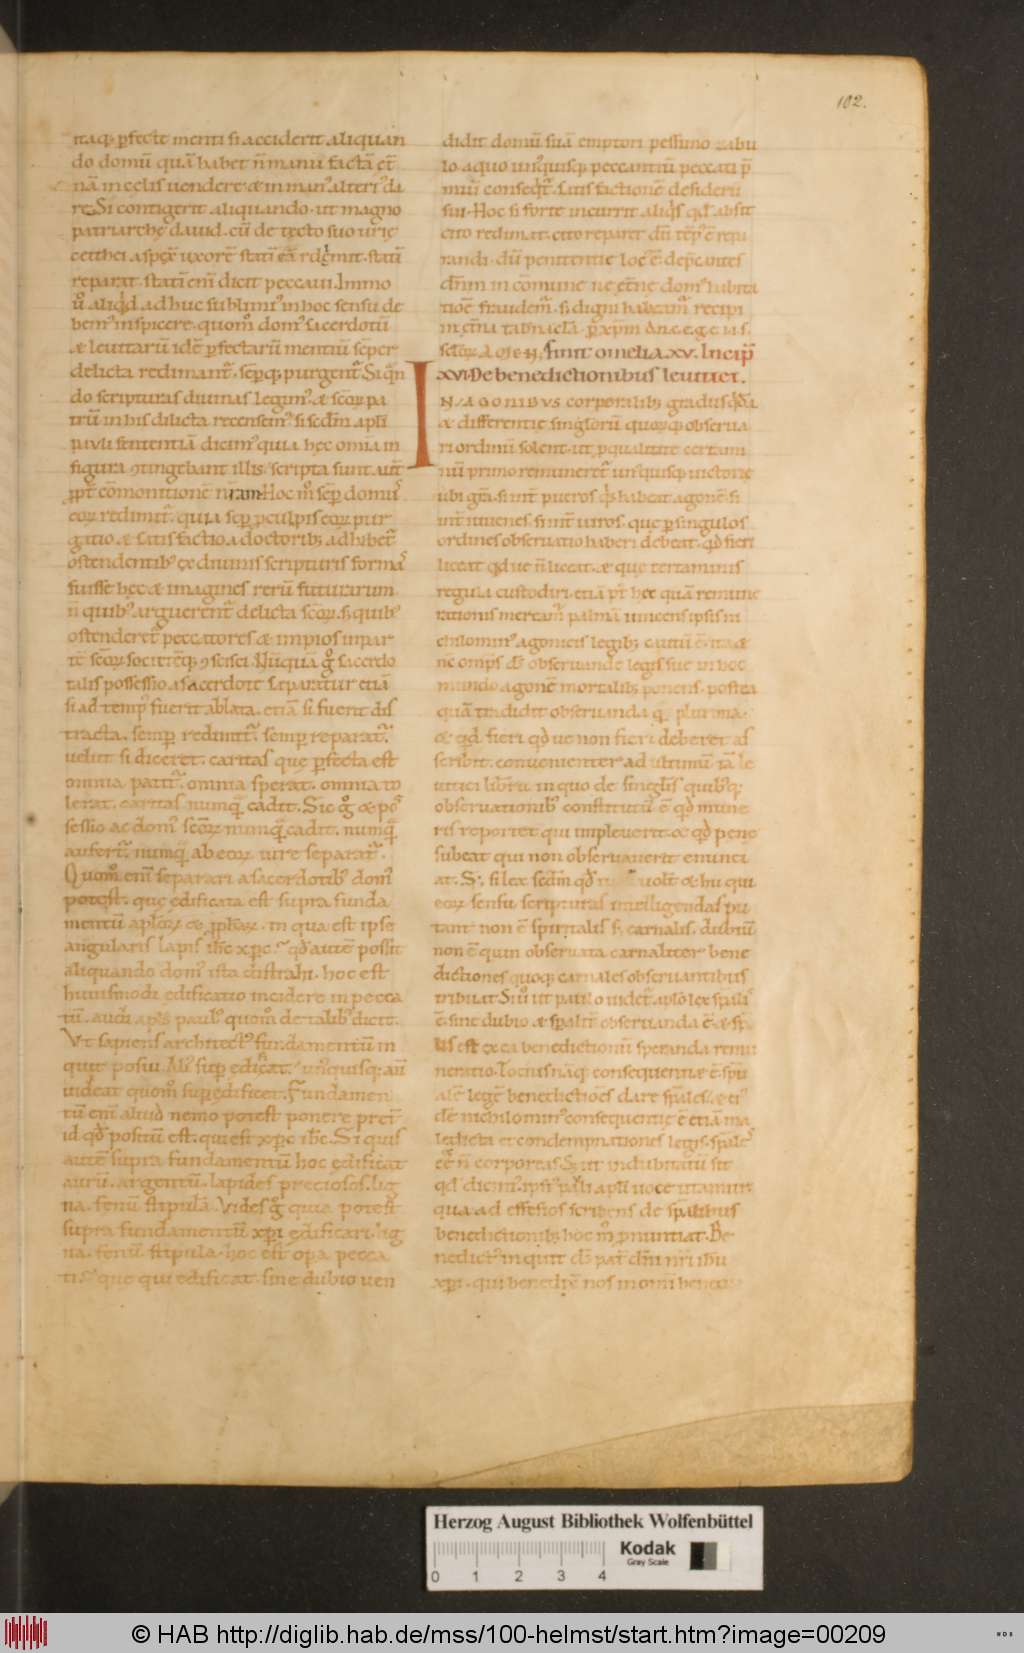 102.
itaq; p̄fecte menti si acciderit aliquan
do domū quā habet n̄ manu factā et̄
nā in celis uendere & in man᾽ alteri᾽ da
re. Si contigerit aliquando ut magno
patriarchę dauid. cū de tecto suo urię
cetthei aspex̄ uxorē statī eā redemit. statī
reparat. statī enī dicit peccaui. Immo
u᾽o aliq̇d adhuc sublimi᾽ in hoc sensu de
bem᾽ inspicere. quom̊ dom᾽ sacerdotū
& leuitarū idē p̄fectarū mentiū semper
delicta redimant᾽. semp̄q; purgent᾽. Si q̄n
do scripturas diuinas legim᾽ & scōꝝ pa
trū in his dilicta recensem᾽. si scdm̄ apl̄i
pauli sententiā dicim᾽ quia hęc omīa in
figura ɔtingebant illis. scripta sunt aūt
p̄pt̄ cōmonitionē nr̄am. Hoc m᾽ semp̄ domus
eoꝝ redimit᾽. quia semp̄ p culpis eoꝝ pur
gatio. & satisfactio a doctorib; adhibet᾽
ostendentib᾽ ex diuinis scripturis forma᾽
fuisse hęc & imagines rerū futurarum
n̄ quib᾽ arguerent᾽ delicta scōꝝ. s; quib᾽
ostenderet᾽ peccatores & impios in par
tē scōꝝ societatēq; ɔscisci. Nūquā g᾽ sacerdo
talis possessio a sacerdote separatur etiā
si ad temp᾽ fuerit ablata. etiā si fuerit dis
tracta. semp̄ redimit᾽. semp̄ reparat᾽.
uelut si diceret. caritas quę p̄fecta est
omnia patit᾽. omnia sperat. omnia to
lerat. caritas nunq̄ cadit. Sic g᾽ & pos
sessio ac dom᾽ scōꝝ nunq̄ cadit. numq̄
aufert᾽. numq̄ ab eoꝝ iure separat᾽.
Quom̊ enī separari a sacerdotib᾽ dom᾽
potest. que ędificata est supra funda
mentū apl̄oꝝ & p̄phaꝝ. in qua est ipse
angularis lapis ih̄c xp̄c. qđ autē possit
aliquando dom᾽ ista distrahi. hoc est
huiusmodi ędificatio incidere in pecca
tū. audi apl̄s paul᾽ quom̊ de talib᾽ dicit.
Vt sapiens architect᾽ fundamentum in
quit posui. Ali᾽ sup̄ ędificat. un᾽quisq; aūt
uideat quom̊ sup̄ędificet. Fundamen
tū enī aliud nemo potest ponere p̄ret̄
id qđ positū est. qui est xp̄c ih̄c. Si quis
autē supra fundamentū hoc ędificat
aurū. argentū. lapides preciosos. lig
na. fenū stipulā. Vides g᾽ quia potest
supra fundamentū xp̄i ędificari. lig
na. fenū. stipula. hoc est opa pecca
ti. & que qui edificat. sine dubio uen
didit domū suā emptori pessimo zabu
lo. a quo un᾽quisq; peccantiū peccati p̄
miū conseq̄t᾽. satisfactionē desiderii
sui. Hoc si forte incurrit aliq̄s qđ absit
cito redimat. cito reparet dū tēp᾽ ē repa
randi. dū penitentię loc᾽ ē. dep̄cantes
dn̄m in comune ne et̄ne dom᾽ habita
tiōe fraudem᾽. s; digni habeam᾽ recipi
in et̄na tabnacla. p̄ xp̄m dn̄
scl̄oꝝ AMEN. finit omelia. XV. Incip̄
XVI. De benedictionibus leuitici.
IN AGONIBVS corporalib; gradus q̄dā
& differentię singlorū quorq; obserua
ri ordinū solent. ut p̄ qualitate certami
nū primo remuneret᾽ un᾽quisq; uictorię
ubi gr̄a. si int̄ pueros q̇s habeat agonē. si
int̄ iuuenes. si int̄ uiros. que p̄ singulos
ordines obseruatio haberi debeat. qđ fieri
liceat qđue n̄ liceat. & que certaminis
regula custodiri. etiā p᾽t hęc quā remune
rationis mereat᾽ palmā uincens ipsis ni
chilomin᾽ agonicis legib; cautū ē. ita &
nc omps dś obseruande legis sue in hoc
mundo agonē mortalib; ponens. postea
quā tradidit obseruanda q̄ plurima.
& qđ fieri qđue non fieri deberet as
scribit. conuenienter ad ultimū iā le
uitici librū in quo de singlis quibq;
obseruationib᾽ constitutū ē qđ mune
ris reportet qui impleuerit. & qđ pene
subeat qui non obseruauerit enunci
at. S; si lex scdm̄ qđ uolt̄ & hu qui
eoꝝ sensu scripturas intelligendas pu
tant non ē spiritalis s; carnalis. dubiū
non ē quin obseruata carnaliter bene
dictiones quoq; carnales obseruantibus
tribuat. Siu᾽ ut paulo uidet᾽ aplo lex spalis
ē. sine dubio & spalit̄ obseruanda ē. & spa
lis est ex ea benedictionū speranda remu
neratio. Totius nāq; consequentię ē. spū
alē legē benedictiōes dare spales. & ei᾽
dē nichilomin᾽ consequentię ē etiā ma
ledicta et condempnationes legis. spales
eē n̄ corporeas. S; ut indubitatū sit
qđ dicim᾽. ipsi᾽ pauli apl̄i uoce utamur.
qua ad effesios scribens de spalibus
benedictionib; hoc m᾽ pnuntiat. Be
nedict᾽ in quit dś pat̄ dn̄i nr̄i ihū
xp̄i. qui benedix̄ nos in omi bene
Herzog August Bibliothek Wolfenbüttel
Kodak
Gray Scale
0 1 2 3 4
© HAB http://diglib.hab.de/mss/100-helmst/start.htm?image=00209